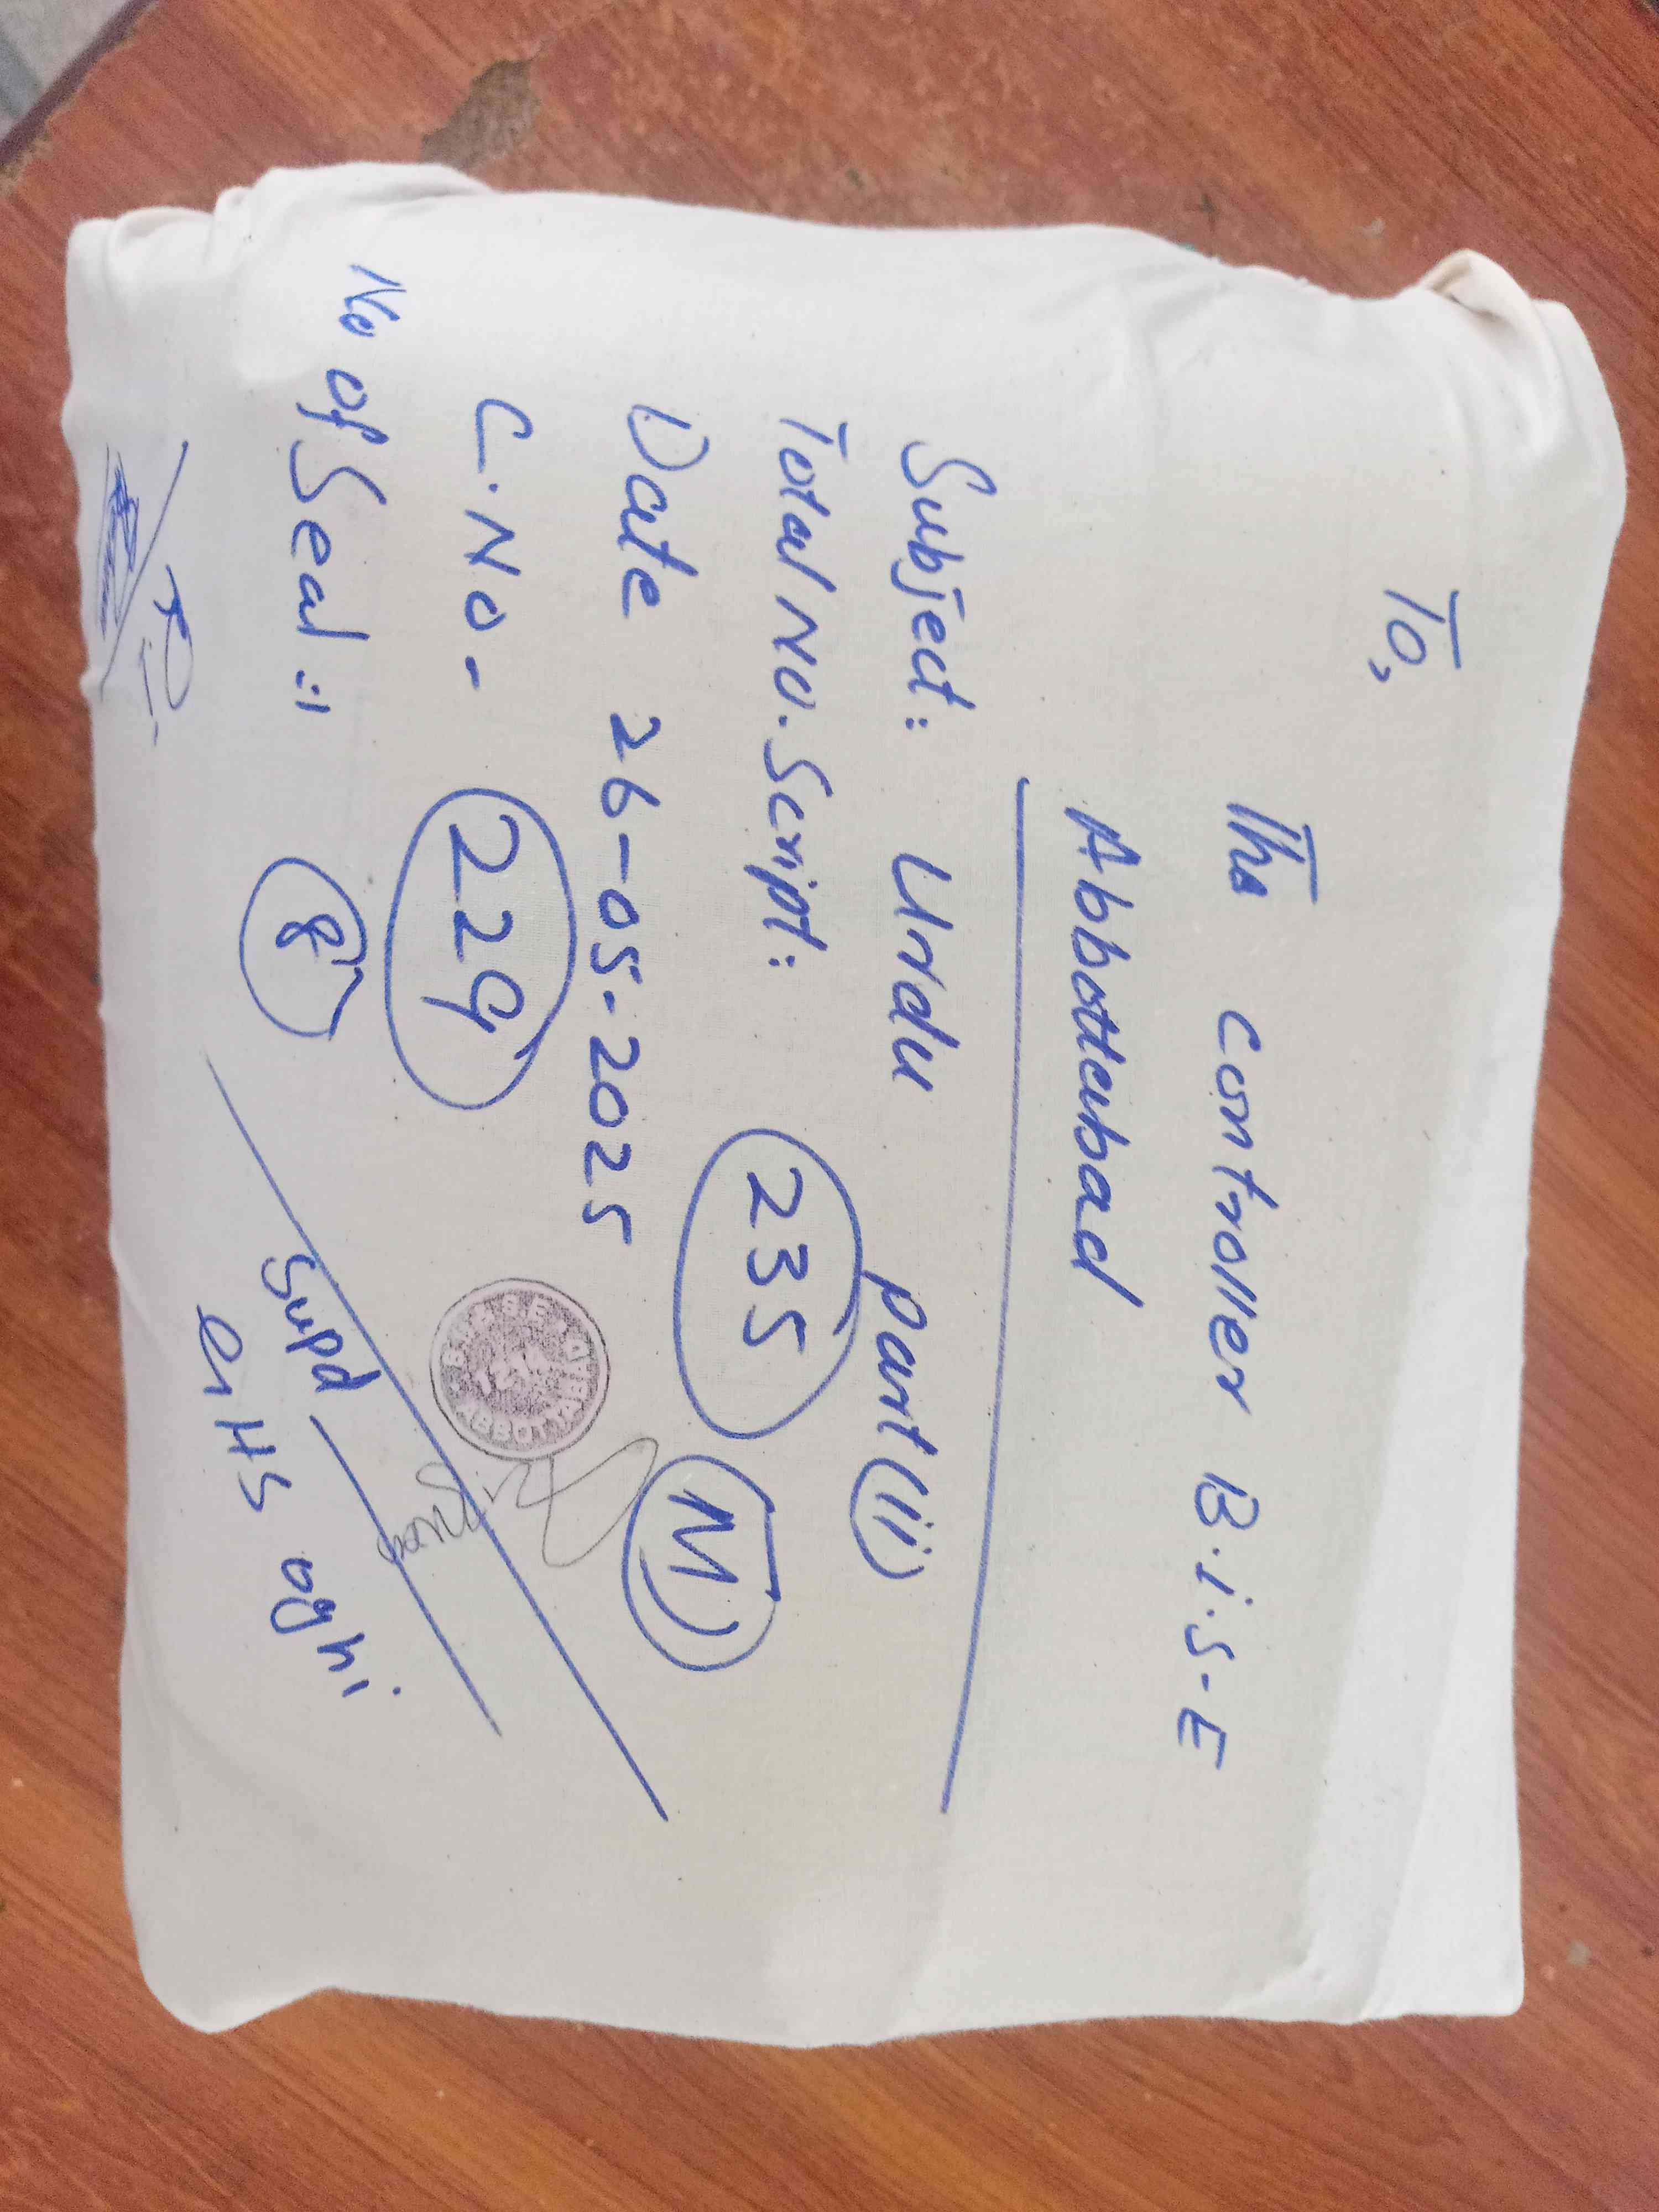 To,
The Controller B.i.S-E
Abbottabad
Subject: Urdu part (ii)
Total No. Script: 235 (M)
Date 26-05-2025
C.No- 229
No of Seal :- 8
Supd
GHS oghi
ABBOTTABAD